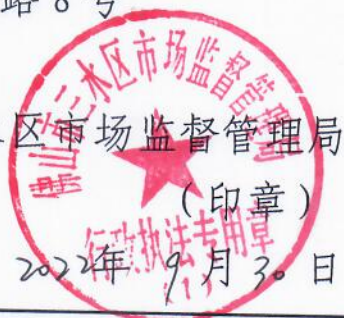 路8号
区市场监督管理局
(印章)
2022年9月30日
佛山市三水区市场监督管理局
行政执法专用章
(1)